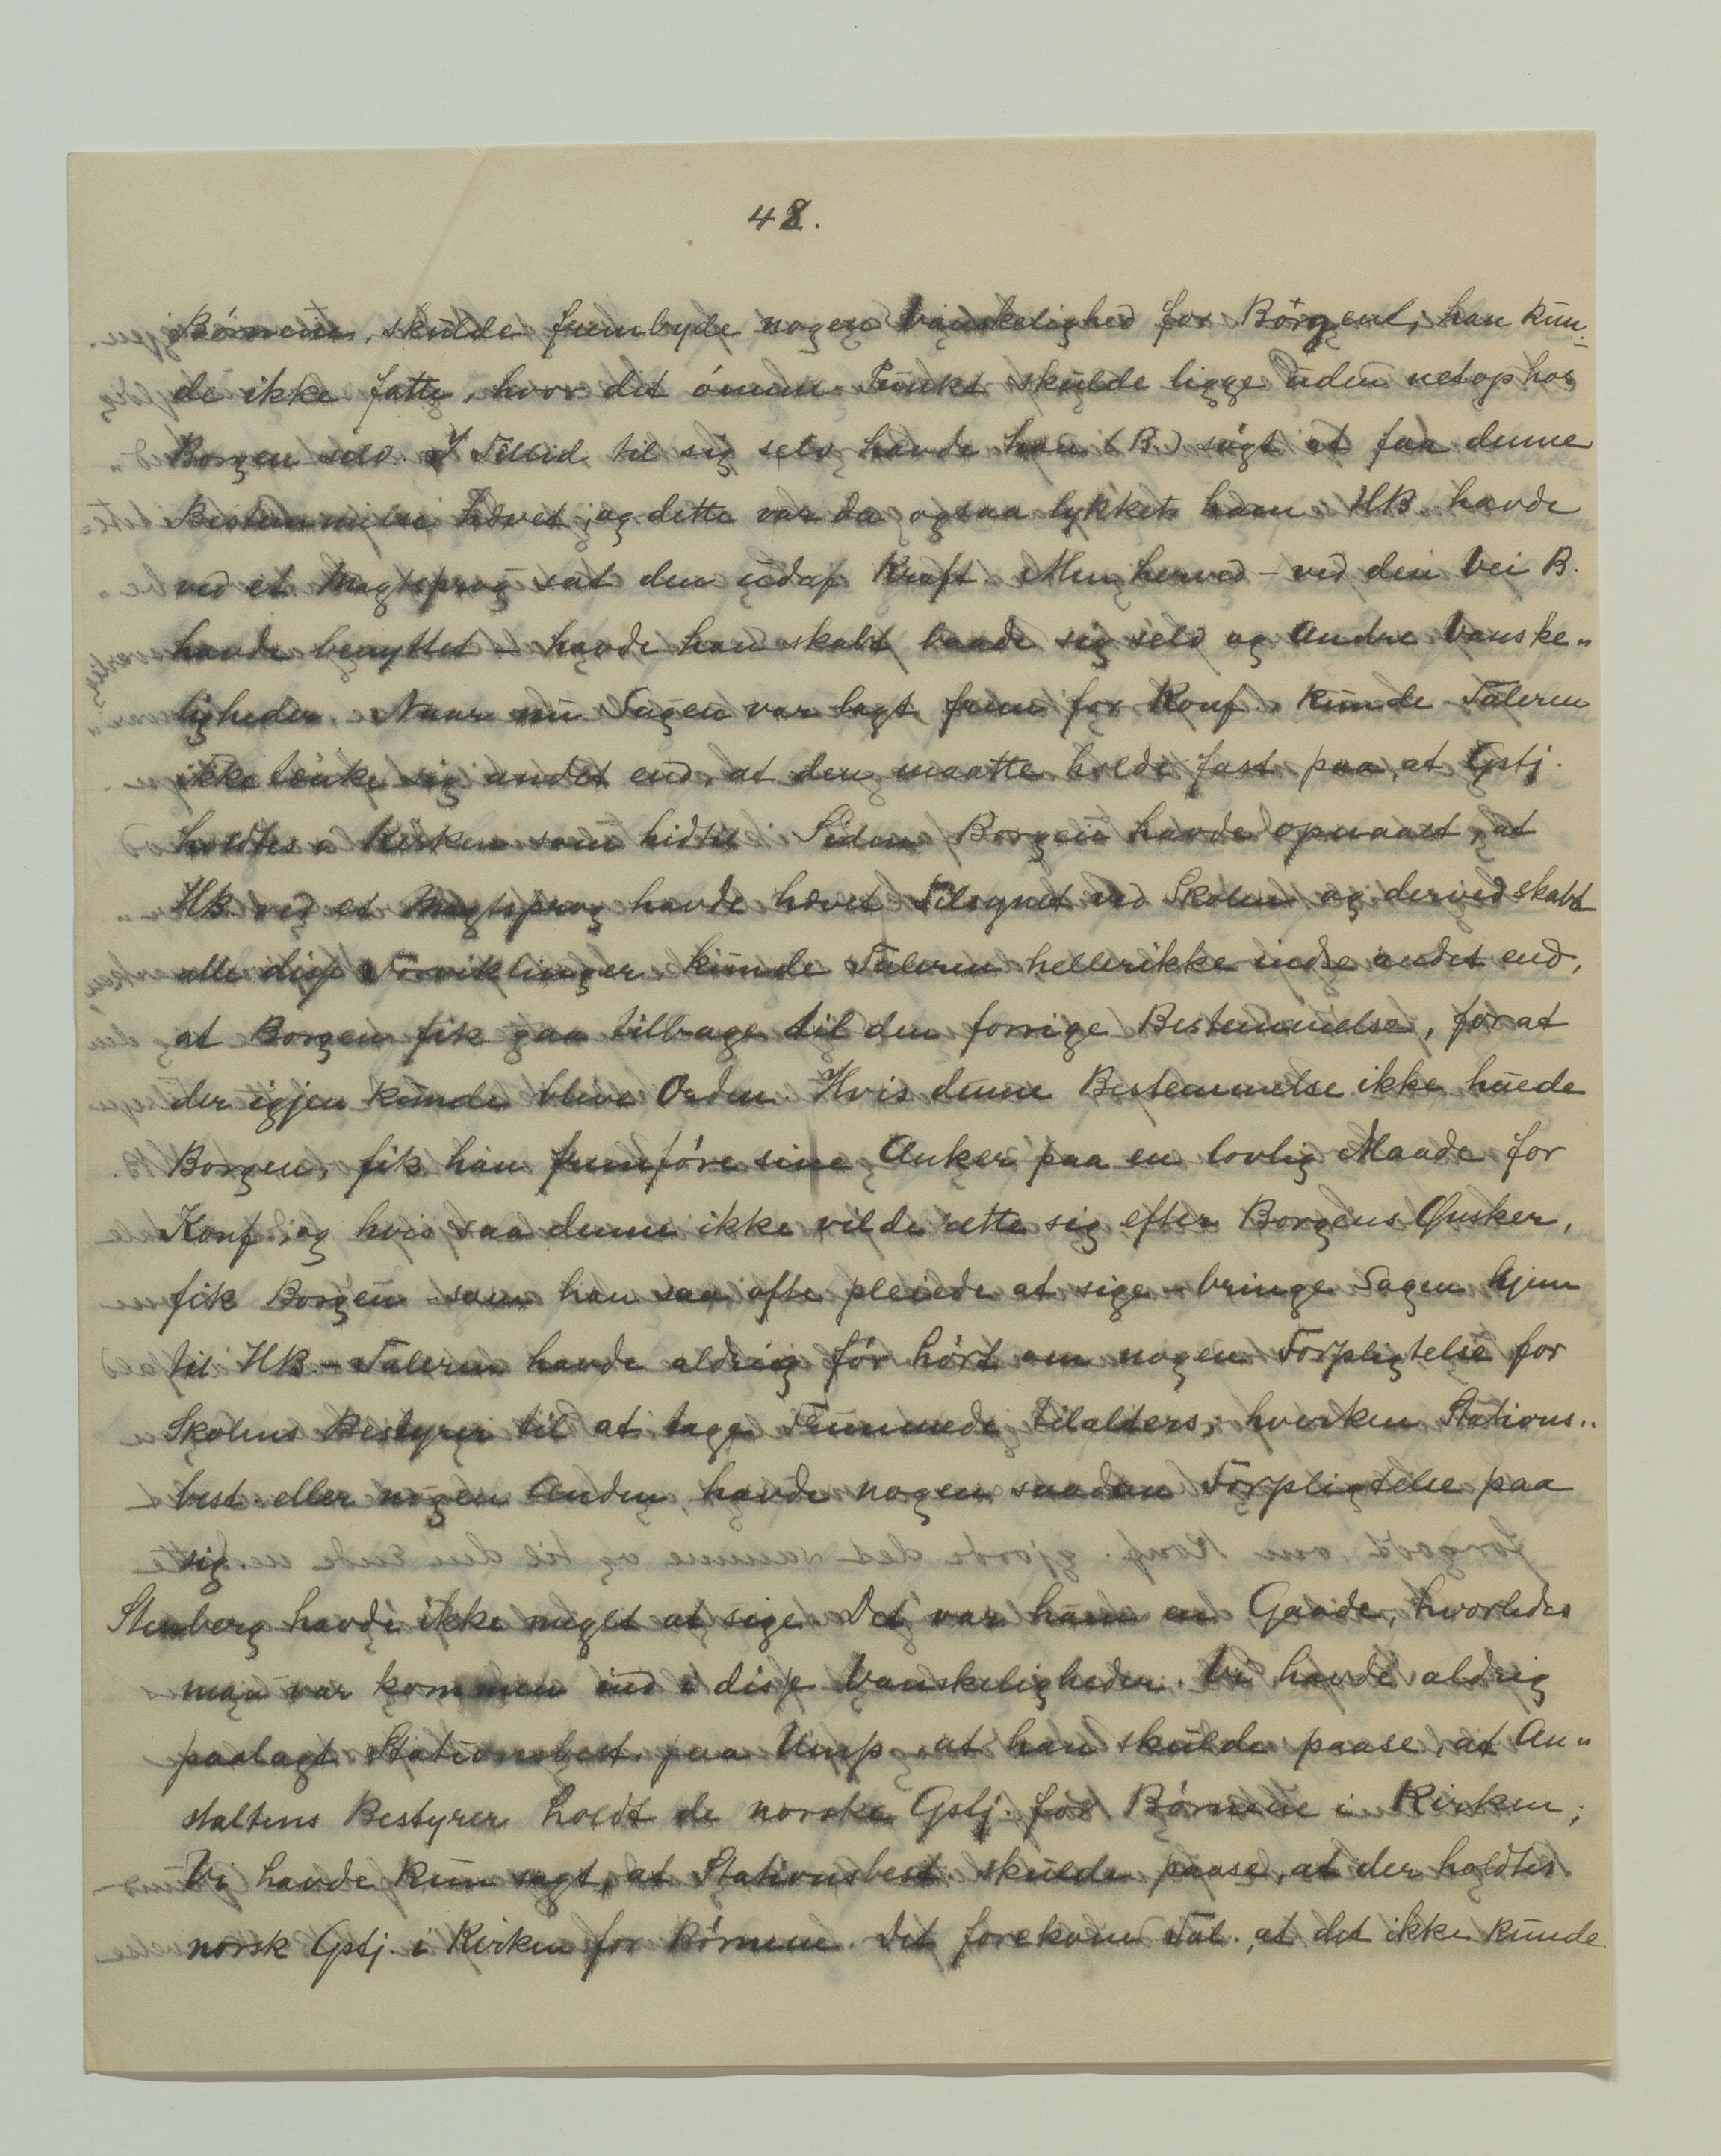 48.
Børnene, skulde frembyde nogen Vanskelighed for Borgen, han kun-
de ikke fatte, hvor det ømme Punkt skulde ligge uden netop hos
Borgen selv. I Tillid til sig selv havde han (B.) søgt at faa denne
Bestemmelse hævet, og dette var da ogsaa lykket ham. HB havde
ved et Magtsprog sat den udaf Kraft. Men herved – ved den Vei B.
havde benyttet – havde han skabt baade sig selv og Andre Vanske-
ligheder. Naar nu Sagen var lagt frem for Konf., kunde Taleren
ikke tænke sig andet end, at den maatte holde fast paa, at Gstj.
holdtes i Kirken som hidtil. Siden Borgen havde opnaaet, at
HB ved et Magtsprog havde hævet Tilsynet ved Skolen og derved skabt
alle disse Forviklinger, kunde Taleren heller ikke indse andet end,
at Borgen fik gaa tilbage til den forrige Bestemmelse, forat
der igjen kunde blive Orden. Hvis denne Bestemmelse ikke huede
Borgen, fik han fremføre sine Anker paa en lovlig Maade for
Konf, og hvis saa denne ikke vilde rette sig efter Borgens Ønsker,
fik Borgen – som han saa ofte pleiede at sige – bringe Sagen hjem
til HB – Taleren havde aldrig før hørt om nogen Forpligtelse for
Skolens Bestyrer til at tage Fremmede tilalters; hverken Stations-
best. eller nogen Anden, havde nogen saadan Forpligtelse paa
sig.
Stenberg havde ikke meget at sige. Det var ham en Gaade, hvorledes
man var kommen ind i disse Vanskeligheder. Vi havde aldrig
paalagt Stationsbest. paa Ump. at han skulde paase, at An-
staltens Bestyrer holdt de norske Gstj. for Børnene i Kirken;
Vi havde kun sagt, at Stationsbest. skulde paase, at der holdtes
norsk Gstj. i Kirken for Børnene. Det forekom Tal., at det ikke kunde